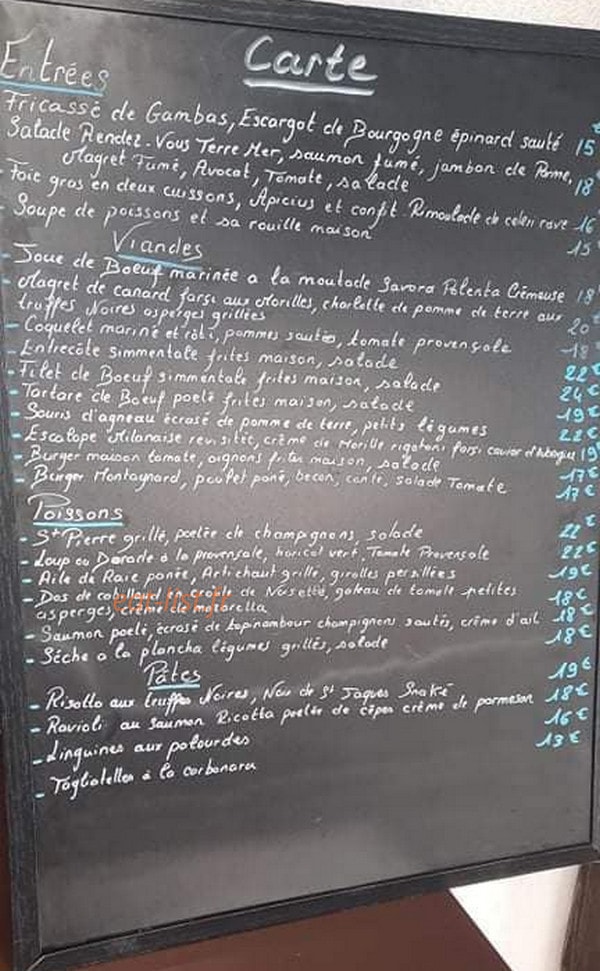 Carte
Entrées
€
Fricassé de Gambas, Escargot de Bourgogne épinard sauté 15
Salade Rendez-Vous Terre Mer, saumon fumé, jambon de Parme,
Magret Fumé, Avocat, Tomate, salade 18
- Foie gras en deux cuissons, Apicius et confit Rimoulade de celeri rave 16
- Soupe de poissons et sa rouille maison 15
Viandes
- Joue de Boeuf marinée a la moutade Savora Polenta Crémeuse 18
- Magret de canard farsi aux Morilles, charlotte de pomme de terre aux
truffes Noires asperges grillées 20
- Coquelet mariné et rôti, pommes sautés, tomate provençale 18
- Entrecôte simmentale frites maison, salade 22€
- Filet de Boeuf simmentale frites maison, salade 24€
- Tartare de Boeuf poelé frites maison, salade 19€
- Souris d'agneau écrasé de pomme de terre, petits légumes 22€
- Escalope Milanaise revisitée, crème de Morille rigatoni farsi caviar d'Aubergine 19
- Burger maison tomate, oignons frites maison, salade 17€
- Burger Montagnard, poulet pané, becon, salade Tomate 17€
Poissons
- St Pierre grillé, poelée de champignons, salade 22€
- Loup ou Dorade à la provensale, haricot vert, Tomate Provensale 22€
- Aile de Raie panée, Artichaut grillé, girolles persillées 19€
- Dos de cabillaud de Nosette, gateau de tomate petites 18€
asperges, crème de motarella 18€
- Saumon poelé, écrasé de topinambour champignons sautés, crème d'ail 18€
- Sèche a la plancha légumes grillés, salade
eat-list.fr
Pâtes
- Risotto aux truffes Noires, Noix de St Jaques Snaké 19€
- Ravioli au Saumon Ricotta poelée de cèpes crème de parmesan 18€
- Linguines aux palourdes 16€
- Tagliatelles à la carbonara 13€